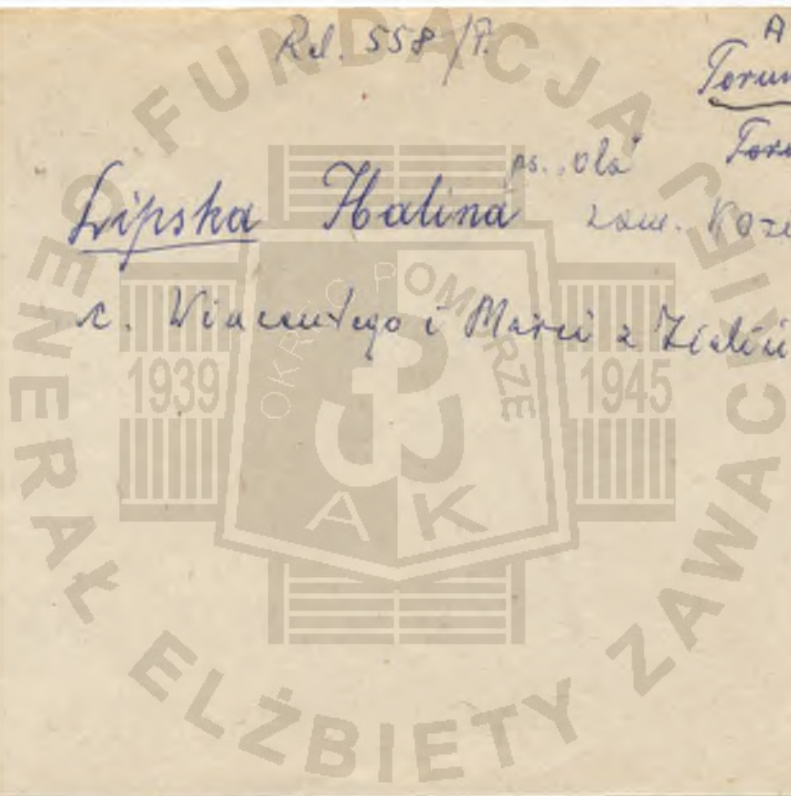 Rel. 558/P.
A
Toruń
ps. "Ola"
Lipska Halina zam.
c. Wincentego i Marii z
FUNDACJA GENERAŁ ELŻBIETY ZAWACKIEJ
OKRĘG POMORZE
1939 1945
AK